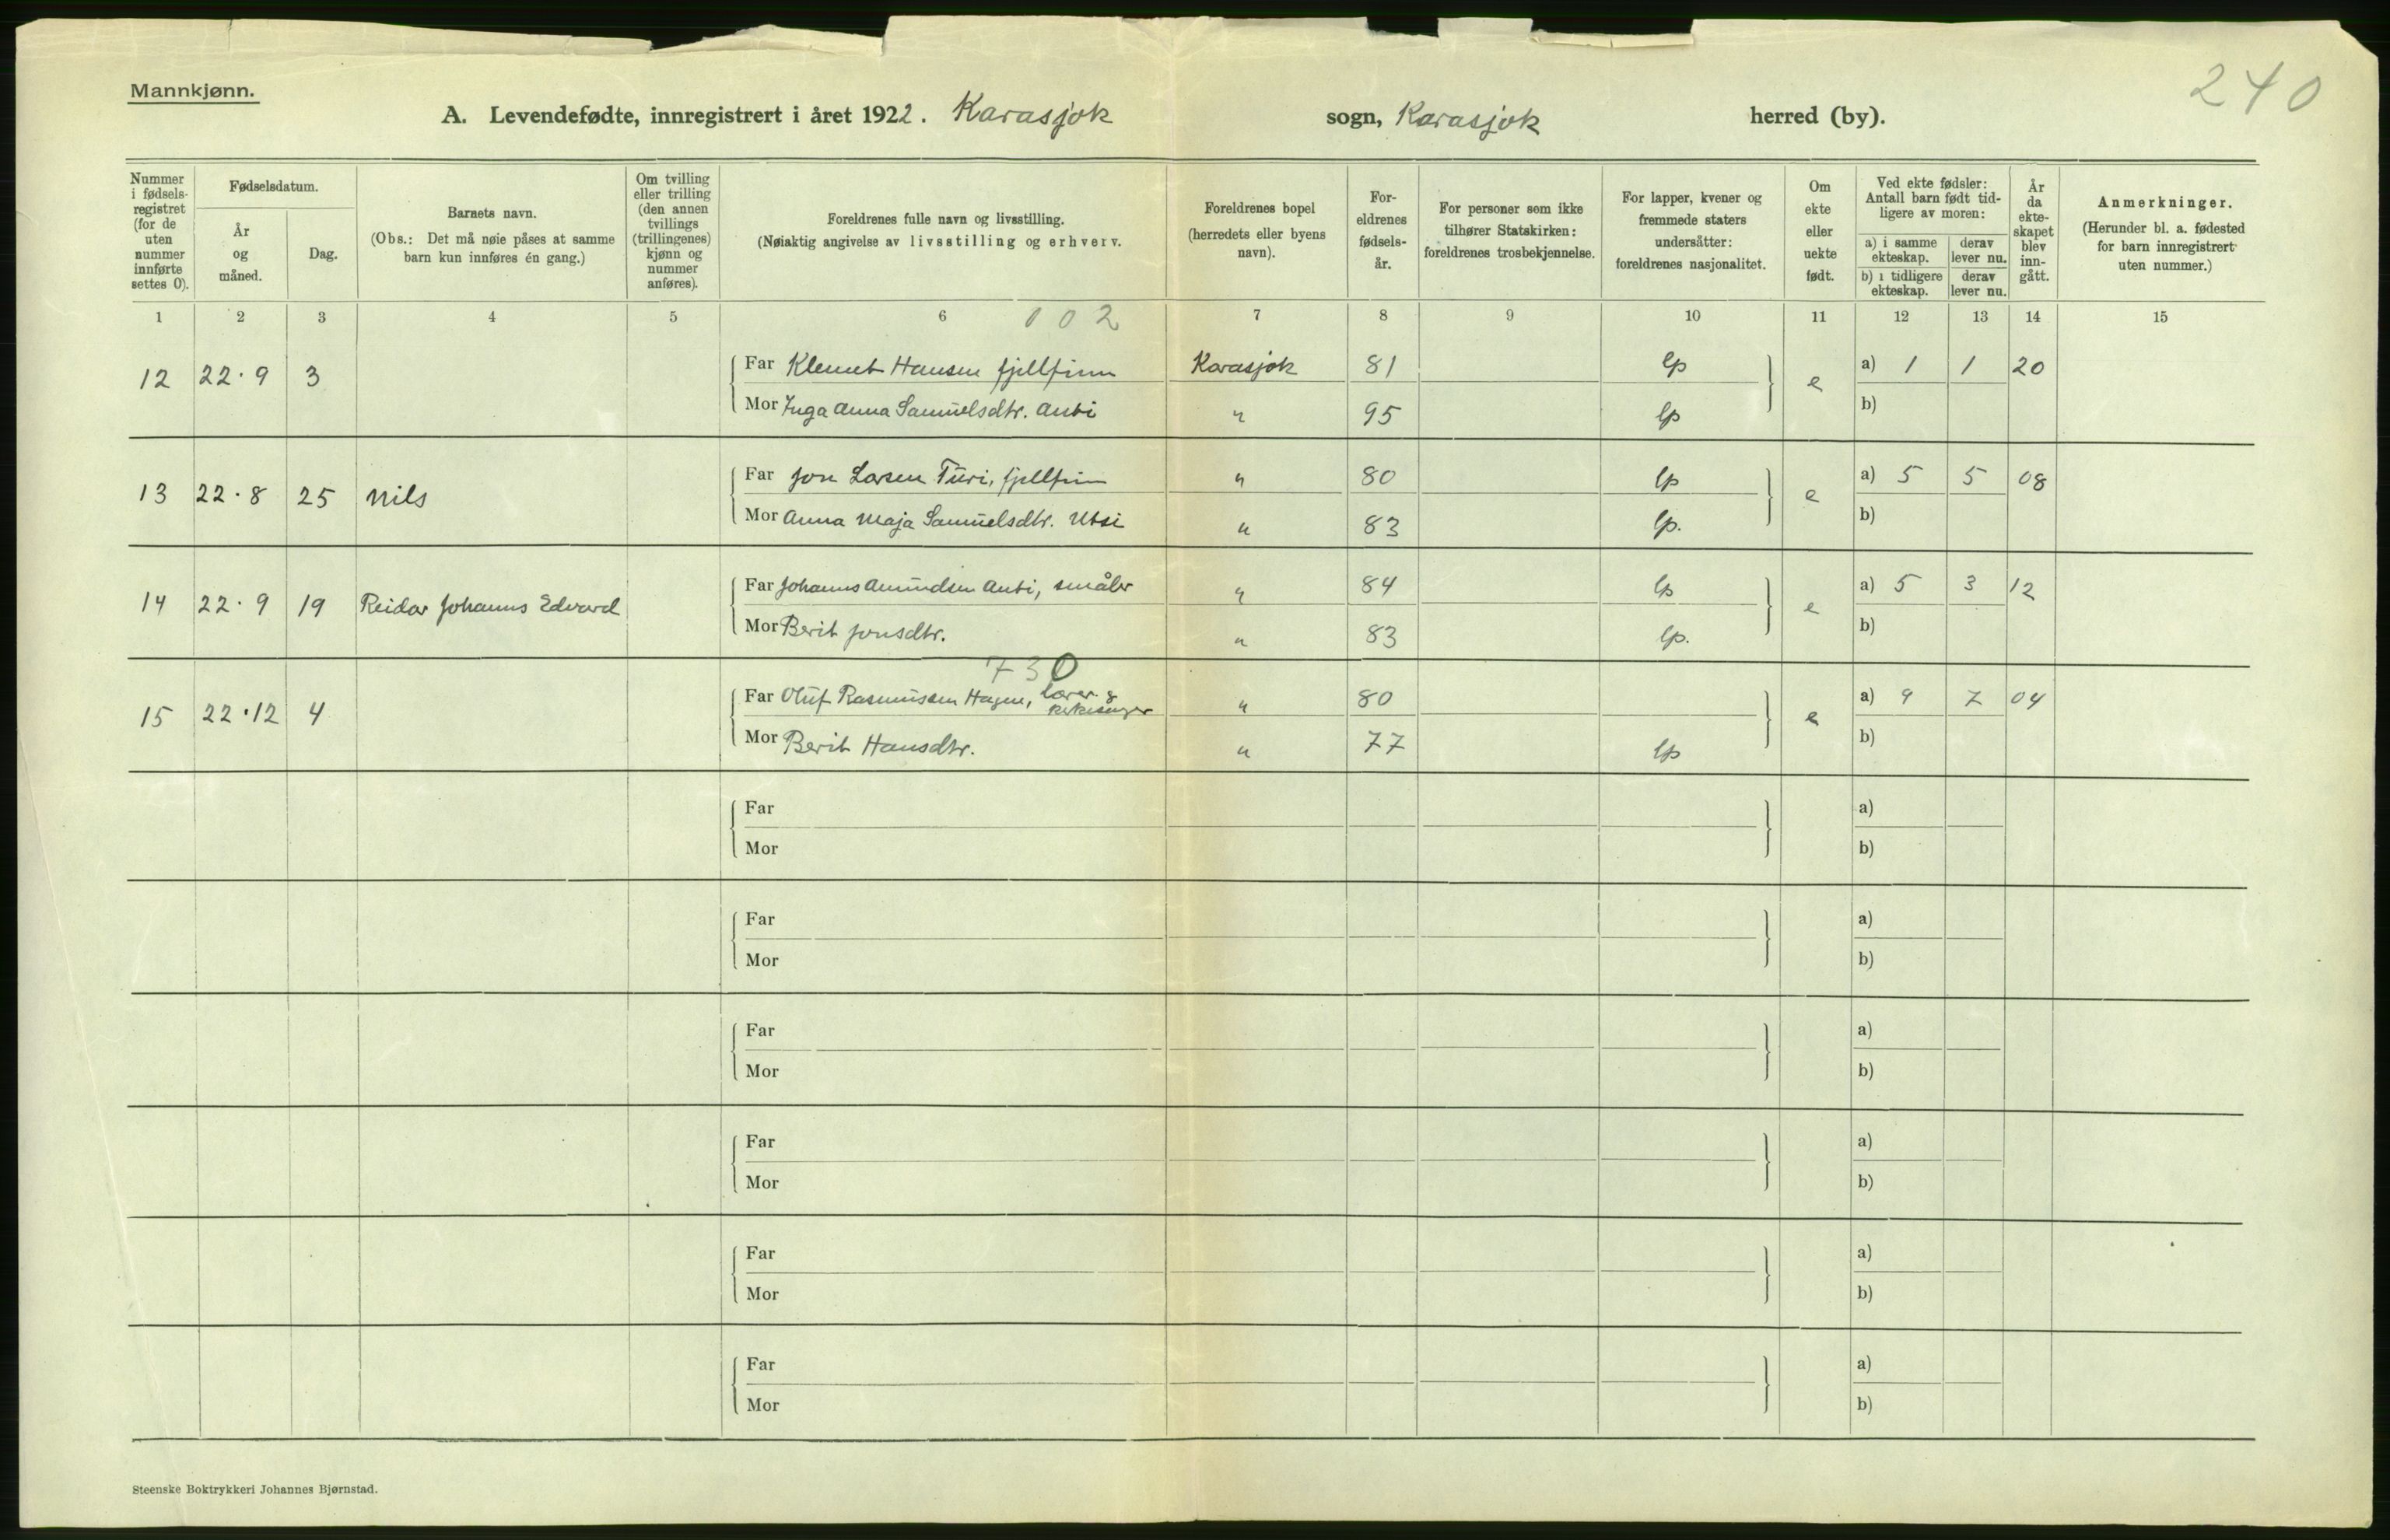 240
Mannkjønn.
A. Levendefødte, innregistrert i året 1922. Karasjok sogn, Karasjok herred (by).
Nummer i fødsels-registret (for de uten nummer innførte settes 0).
Fødselsdatum.
År og måned.
Dag.
Barnets navn.
(Obs.: Det må nøie påses at samme barn kun innføres én gang.)
Om tvilling eller trilling (den annen tvillings (trillingenes) kjønn og nummer anføres).
Foreldrenes fulle navn og livsstilling.
(Nøiaktig angivelse av livsstilling og erhverv.
Foreldrenes bopel (herredets eller byens navn).
For-eldrenes fødsels-år.
For personer som ikke tilhører Statskirken: foreldrenes trosbekjennelse.
For lapper, kvener og fremmede staters undersåtter: foreldrenes nasjonalitet.
Om ekte eller uekte født.
Ved ekte fødsler: Antall barn født tid-ligere av moren:
a) i samme ekteskap.
derav lever nu.
b) i tidligere ekteskap.
derav lever nu.
År da ekte-skapet blev inn-gått.
Anmerkninger.
(Herunder bl. a. fødested for barn innregistrert uten nummer.)
1 2 3 4 5 6 7 8 9 10 11 12 13 14 15
002
12 22.9 3 Far Klemet Hansen fjellfinn Karasjok 81 lp e a) 1 1 20
Mor Inga Anna Samuelsdtr. Anti " 95 lp b)
13 22.8 25 Nils Far Jon Larsen Turi, fjellfinn " 80 lp e a) 5 5 08
Mor Anna Maja Samuelsdtr. Utsi " 83 lp. b)
14 22.9 19 Reidar Johannes Edvard Far Johannes Amundsen Anti, småbr " 84 lp e a) 5 3 12
Mor Berit Jonsdtr. " 83 lp. b)
730
15 22.12 4 Far Oluf Rasmussen Hagen, lærer & kirkesanger " 80 e a) 9 7 04
Mor Berit Hansdtr. " 77 lp b)
Far a)
Mor b)
Far a)
Mor b)
Far a)
Mor b)
Far a)
Mor b)
Far a)
Mor b)
Far a)
Mor b)
Steenske Boktrykkeri Johannes Bjørnstad.